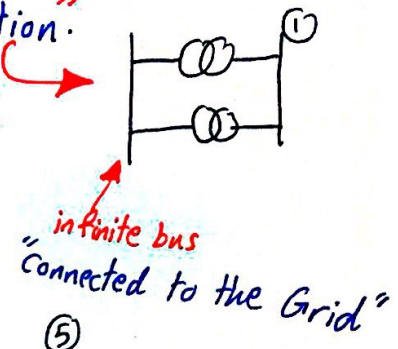 tion."
①
infinite bus
"Connected to the Grid"
⑤